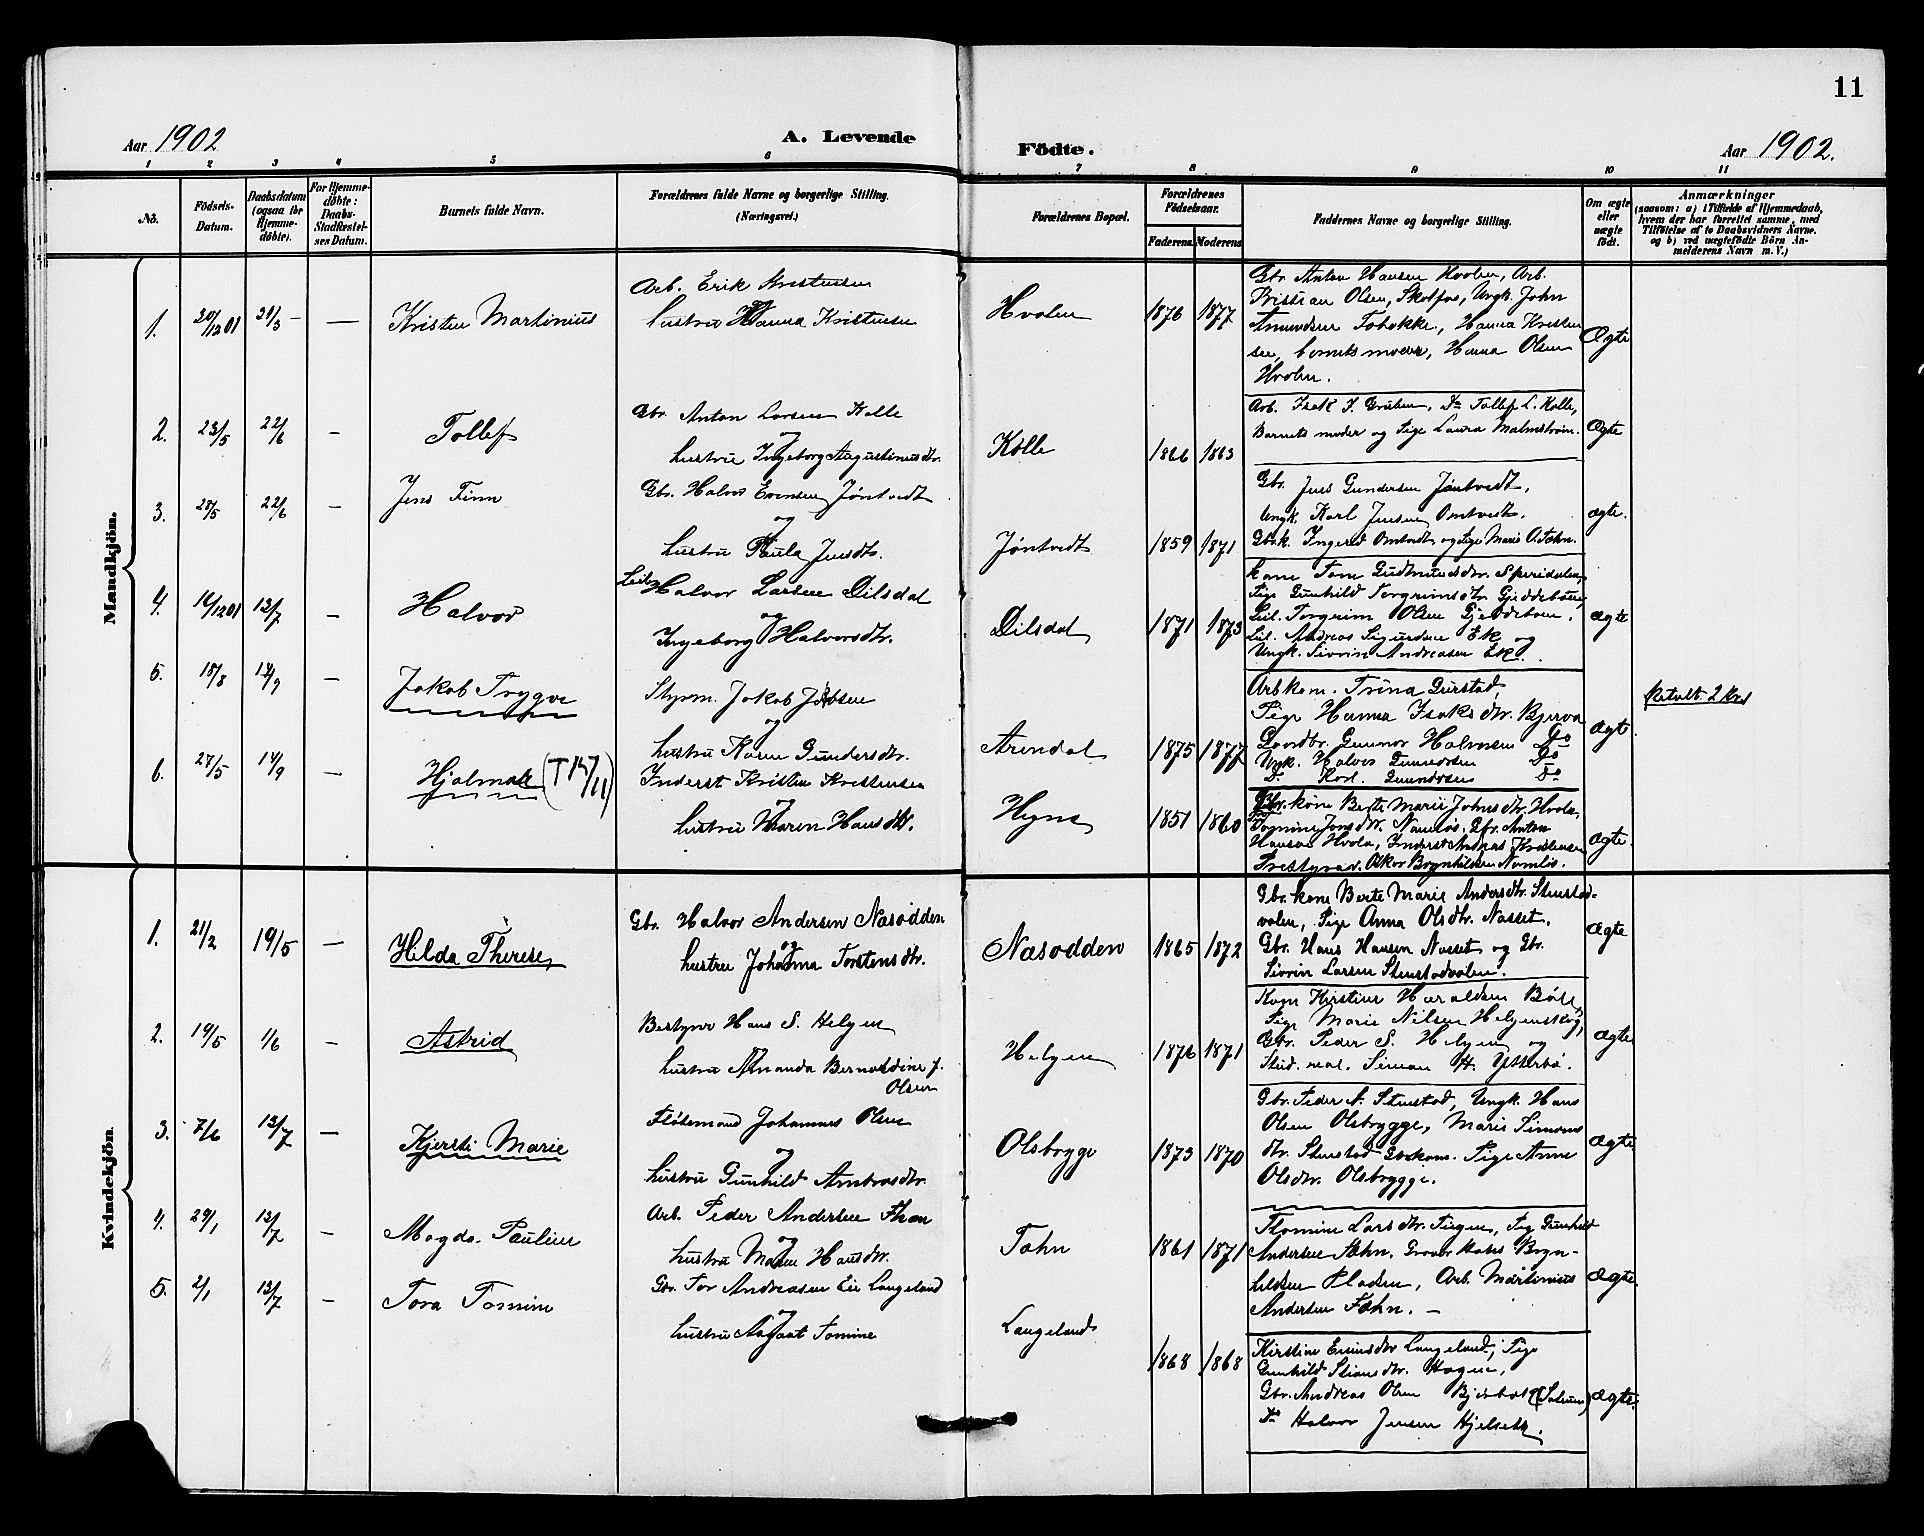 11
Aar 1902
A. Levende
Födte.
Aar 1902.
1 2 3 4 5 6 7 8 9 10 11
No.
Födsels-
Datum.
Daabsdatum
(ogsaa for
Hjemme-
döbte).
For Hjemme-
döbte:
Daabs-
Stadfestel-
ses Datum.
Barnets fulde Navn.
Forældrenes fulde Navne og borgerlige Stilling.
(Næringsvei.)
Forældrenes Bopæl.
Forældrenes
Födselsaar.
Faderens. Moderens.
Faddernes Navne og borgerlige Stilling.
Om ægte
eller
uægte
födt.
Anmærkninger
(saasom: a) i Tilfælde af Hjemmedaab,
hvem der har forrettet samme, med
Tilföielse af to Daabsvidners Navne.
og b) ved uægtefödte Börn An-
melderens Navn m. V.)
Mandkjön.
1. 20/12 01 31/3 — — Kristen Martinius
Arb. Erik Kristensen
hustru Hanna Kristensen
Hvolen 1876 1877
Gbr Anton Hansen Hvolen, Arb.
Kristian Olsen, Skotfos, Ungk. John
Amundsen Fobekke, Hanna Kristen
sen, barnets moder, Hanna Olsen
Hvolen.
Ægte
2. 23/5 22/6 — Tollef
Gbr. Anton Larsen Kolle
og
hustru Ingeborg Augustinusdtr.
Kolle 1866 1863
Arb. Isak I. Gruben, Do Tollef L. Kolle,
Barnets moder og Pige Laura Malmstrøm.
Ægte
3. 25/5 22/6 — Jens Finn
Gbr. Halvor Evensen Jøntvedt
og
hustru Paula Jensdtr.
Jøntvedt 1859 1871
Gbr. Jens Gundersen Jøntvedt,
Ungk. Karl Jensen Omtvedt.
Gbk. Ingerid Omtvedt og Pige Marie O. Fæhn.
ægte.
4. 16/12 01 13/7 — Halvor
Leil. Halvor Larsen Dilsdal
og
Ingeborg Halvorsdtr.
Dilsdal 1871 1873
kone Tone Gudmundsdtr. Sperrdalen,
Pige Gunhild Torgrimsdtr Gjeddeboen,
Leil. Torgrim Olsen Gjeddeboen.
Leil. Andreas Sigurdsen Ek og
Ungk. Sivrin Andreasen Ek.
ægte
5. 18/8 14/9 — Jakob Trygve
Styrm. Jakob Jakobsen
og
hustru Karen Gundersdtr.
Arendal 1875 1877
Arbkone. Trina Gurstad,
Pige Hanna Isaksdtr. Bjerva
Gaardbr. Gunnar Halvorsen Do
Ungk. Halvor Gunnarsen Do
Do. Karl. Gunnarsen Do
ægte
Betalt 2 kr.
6. 27/5 14/9 — Hjalmar (T 147/11)
Inderst Kristen Kristensen
og
hustru Maren Hansdtr.
Hegna 1851 1860
Gbr. kone Berte Marie Johnsdtr. Hvola,
Tomine Jonsdtr. Namløs, Gbr. Anton
Hansen Hvola, Inderst Andreas Kristensen
Prestgaard. Oskar Brynhildsen Namløs.
ægte.
Kvindekjön.
1. 21/2 19/5 — Hilda Therese,
Gbr. Halvor Andersen Nasodden
og
hustru Johanna Torstensdtr.
Nasodden 1865 1872
Gbr. kone Berte Marie Andersdtr. Stenstad-
valen, Pige Anna Olsdtr. Nasset.
Gbr. Hans Hansen Nasset og Gbr.
Sivrin Larsen Stenstadvalen.
ægte
2. 19/5 1/6 — Astrid
Bestyrer Hans S. Helgen
hustru Amanda Bernoldine f.
Olsen
Helgen 1876 1871
Kone Kirstine Haraldsen Bøle,
Pige Marie Nilsen Helgenskog,
Gbr. Peder S. Helgen og
Stud. real. Simon H. Ytterbø.
ægte
3. 7/6 13/7 — Kjersti Marie
Flødemand Johannes Olsen
og
hustru Gunhild Ambrosdtr.
Olsbrygge 1873 1870
Gbr. Peder N. Stenstad, Ungk. Hans
Olsen Olsbrygge, Marie Simons
dtr. Stenstad Gbkone. Pige Anne
Olsdtr. Olsbrygge.
ægte
4. 29/1 13/7 — Magda Pauline
Arb. Peder Andersen Fæhn
og
hustru Maren Hansdtr.
Fæhn 1861 1871
Thomine Larsdtr. Tufgen, Pige Gunhild
Andersen Fæhn. Bryn-
hildsen Pladsen, Arb. Martinius
Andersen Fæhn. —
ægte
5. 2/1 13/7 — Tora Tomine
Gbr. Tor Andreasen Eie Langeland
og
hustru Aagaat Tomine
Langeland 1868 1868
Kirstine Evensdtr Langeland, Pige
Gunhild Stiansdtr. Hagen,
Gbr. Andreas Olsen
Do Halvor Jensen Hjelseth.
ægte.